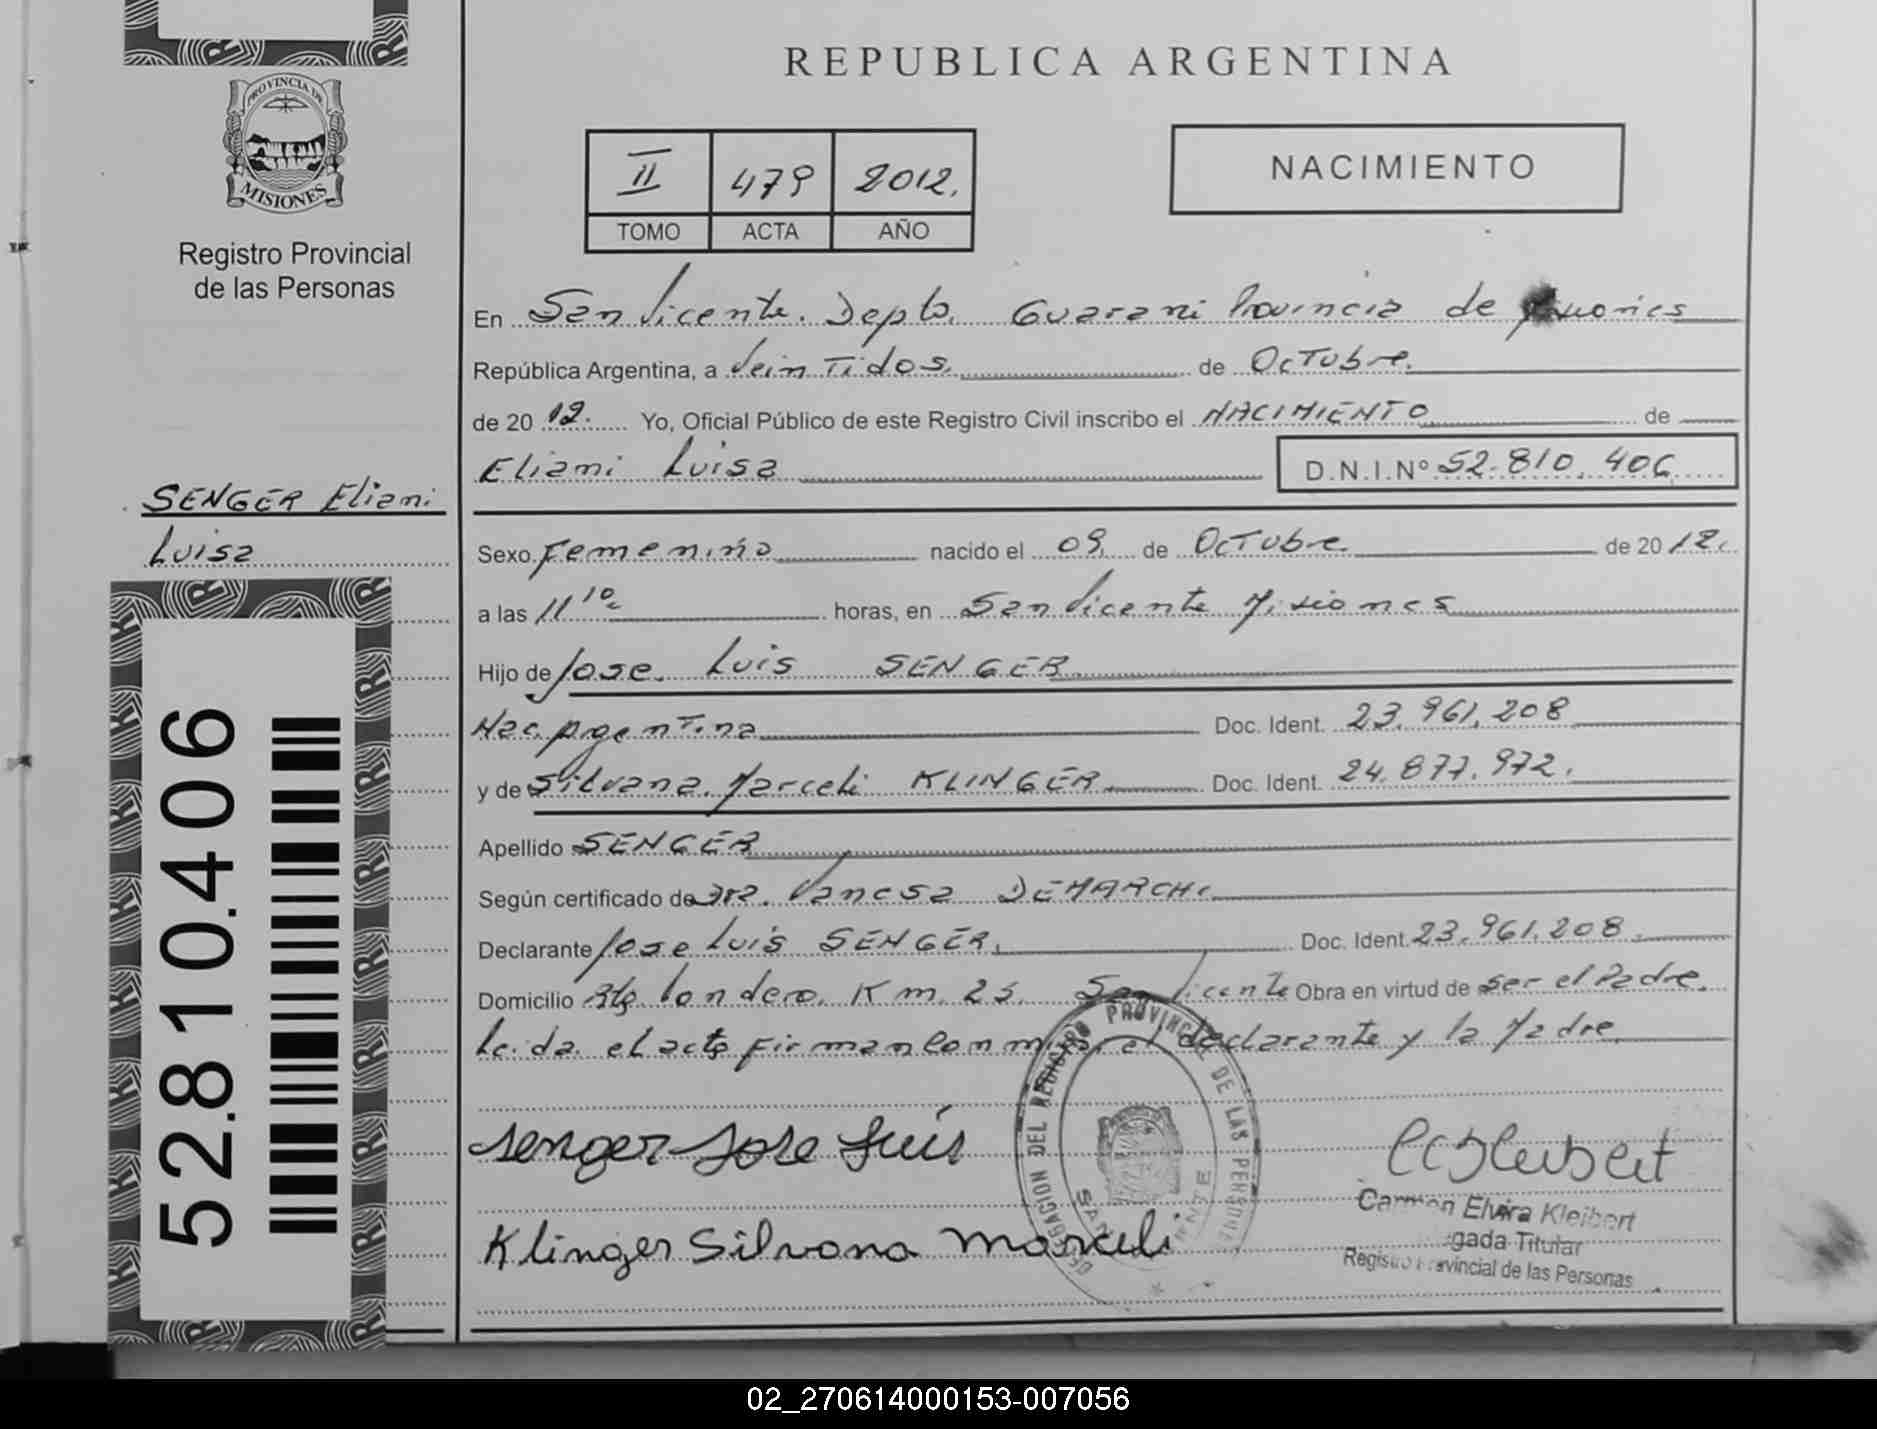 REPUBLICA ARGENTINA
PROVINCIA DE
MISIONES
Registro Provincial
de las Personas
II 479 2012.
TOMO ACTA AÑO
NACIMIENTO
En San Vicente. Depto. Guarani Provincia de Misiones
República Argentina, a Veintidos. de Octubre.
de 20 12. Yo, Oficial Público de este Registro Civil inscribo el NACIMIENTO de
Eliani Luisa D.N.I.Nº 52.810.406
SENGER Eliani
Luisa
Sexo Femenino nacido el 09. de Octubre. de 20 12.
a las 11 10 horas, en San Vicente Misiones
Hijo de Jose. Luis SENGER
Nac. Argentina Doc. Ident. 23.961.208
y de Silvana Marceli KLINGER Doc. Ident. 24.877.972.
Apellido SENGER
Según certificado de Dra. Vanesa DEMARCHI
Declarante Jose Luis SENGER. Doc. Ident. 23.961.208
Domicilio Londero. Km. 23. San Vicente Obra en virtud de ser el Padre.
Leida el acta firman el declarante y la Madre.
Senger Jose Luis
Klinger Silvana Marceli
DELEGACION DEL REGISTRO PROVINCIAL DE LAS PERSONAS
SAN VICENTE
Carmen Elvira Kleibert
gada Titular
Registro Provincial de las Personas
52.810.406
02_270614000153-007056